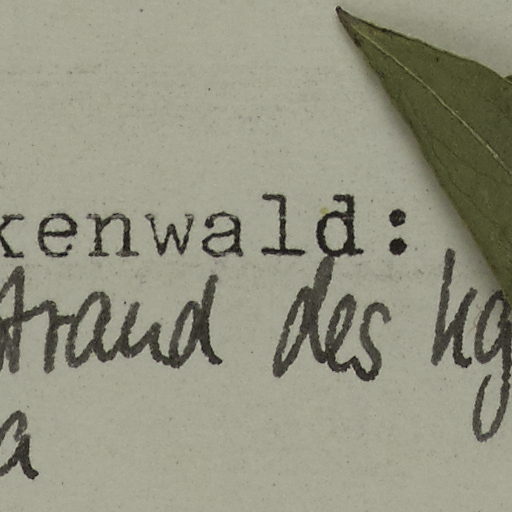 kenwald:
strand des
a